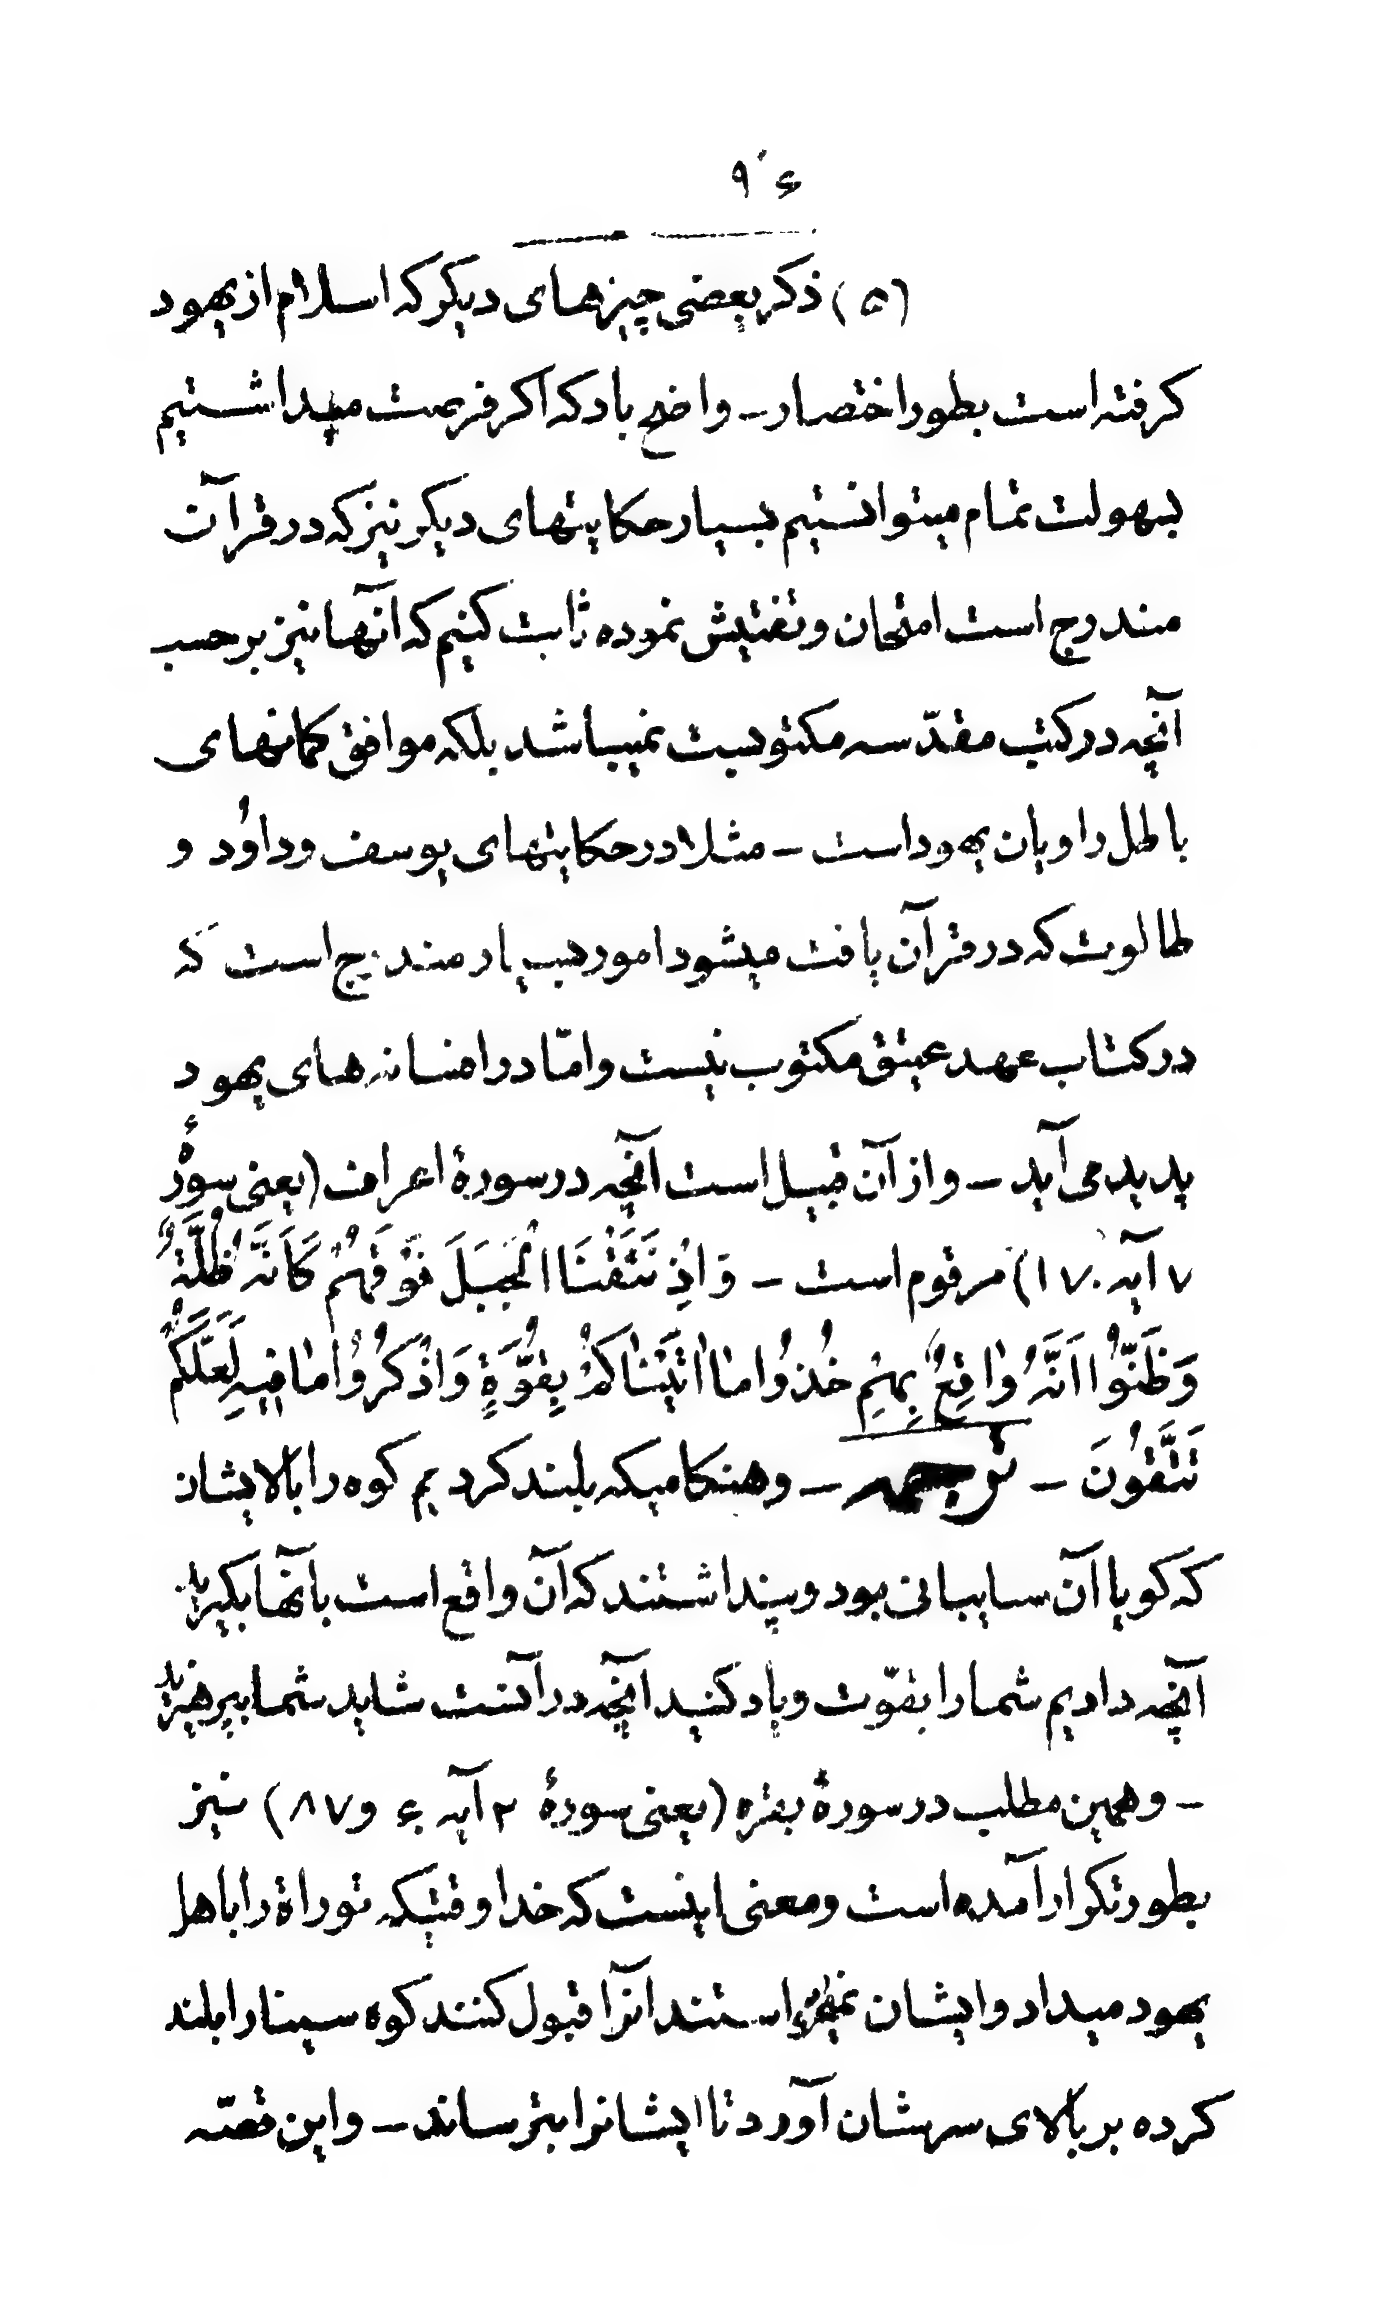 ۹۶
(۵) ذکر بعضی چیزهای دیکر که اسلام از یهود
کرفته است بطور اختصار - واضح باد که اکر فرصت میداشتیم
بسهولت تمام میتوانستیم بسیار حکایتهای دیکر نیز که در قرآن
مندرج است امتحان و تفتیش نموده ثابت کنیم که آنها نیز بر حسب
آنچه در کتب مقدّسه مکتوبست نمیباشد بلکه موافق کمانهای
باطل راویان یهود است - مثلا در حکایتهای یوسف و داوُد و
طالوت که در قرآن یافت میشود امور بسیار مندرج است که
در کتاب عهد عیتق مکتوب نیست و امّا در افسانه های یهود
پدید می آید - و از آن قبیل است آنچه در سورهٔ اعراف (یعنی سورهٔ
۷ آیه ۱۷۰) مرقوم است - وَ اِذْ نَتَقْنَا الْجَبَلَ فَوْقَهُمْ كَاَنَّهُ ظُلَّةٌ
وَظَنُّوْا اَنَّهُ وٰاقِعٌ بِهِمْ خُذُوْا مٰا اٰتَيْنٰاكُمْ بِقُوَّةٍ وَاذْكُرُوْا مٰا فيهِ لَعَلَّكُمْ
تَتَّقُونَ - ترجمه - و هنکامیکه بلند کردیم کوه را بالا یشان
که کویا آن سایبانی بود و پنداشتند که آن واقع است بآنها بکیرید
آنچه دادیم شما را بقوّت و یاد کنید آنچه در آنست شاید شما بپرهیزید
- و همین مطلب در سورهٔ بقره (یعنی سورهٔ ۲ آیه ۶۰ و ۸۷) نیز
بطور تکرار آمده است و معنی اینست که خدا وقتیکه توراة را باهل
یهود میداد و ایشان نمیخواستند آنرا قبول کنند کوه سینا را بلند
کرده بر بالای سرشان آورد تا ایشانرا بترساند - و این قصّه